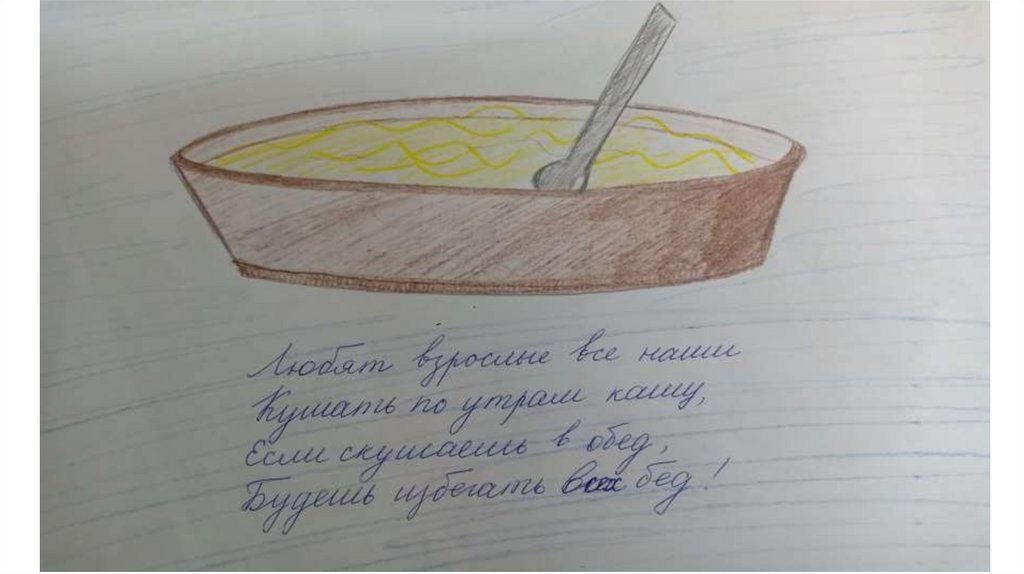 Любят взрослые все наши
Кушать по утрам кашу,
Если скушаешь в обед,
Будешь избегать всех бед!